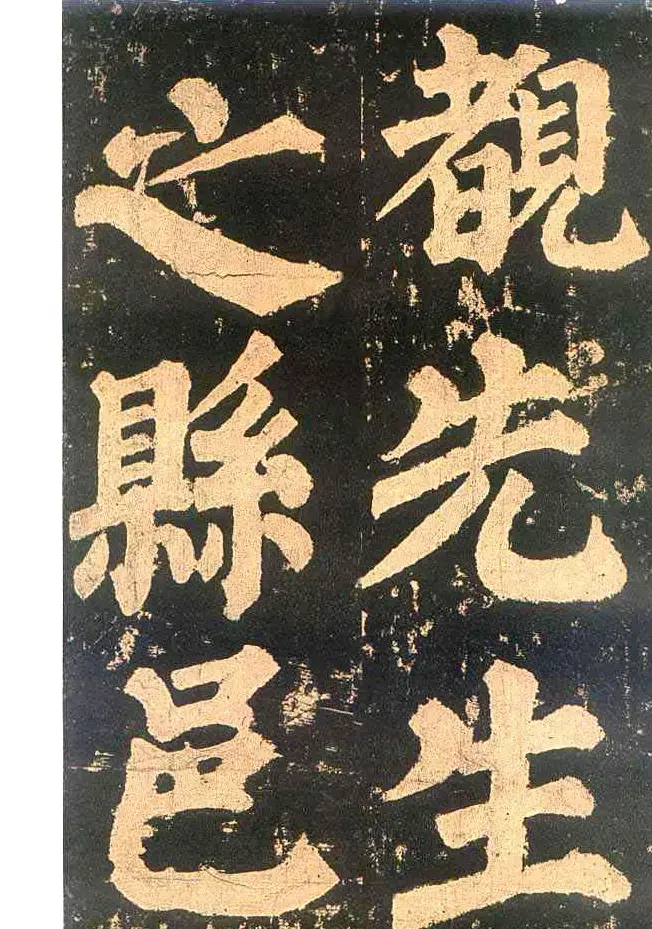 覩先生
之縣邑